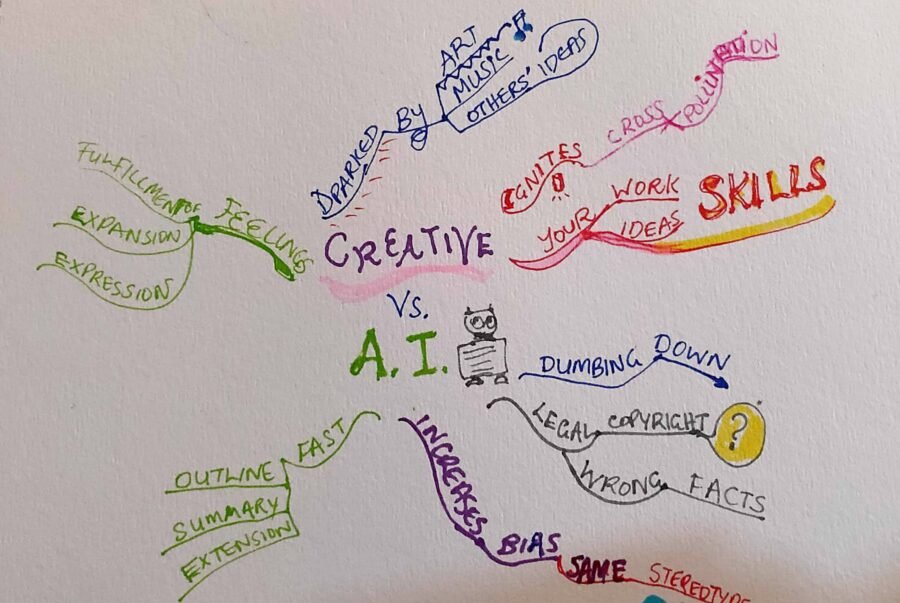 DPARKED BY
ART
MUSIC
OTHERS' IDEAS
IGNITES
CROSS POLLINTATION
YOUR
WORK
IDEAS
SKILLS
FEELINGS
FULFILLMENT OF
EXPANSION
EXPRESSION
CREATIVE
VS.
A.I.
DUMBING DOWN
LEGAL COPYRIGHT ?
WRONG FACTS
INCREASES BIAS
SAME STEREOTYPE
FAST
OUTLINE
SUMMARY
EXTENSION